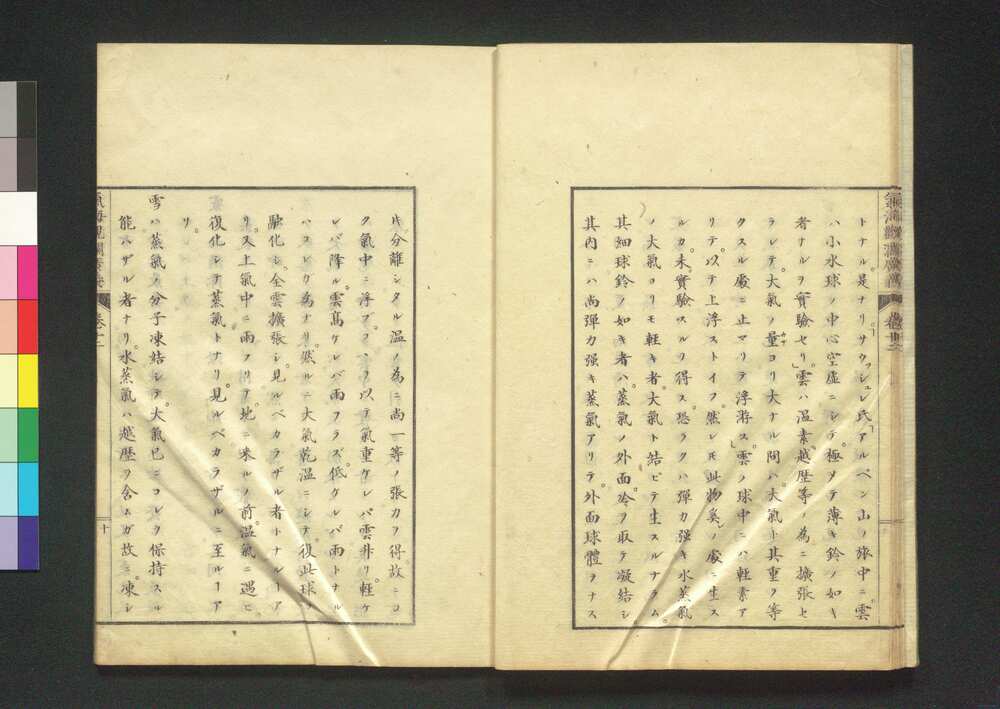 トナル。是ナリ。「サウッシュレ氏」「アルペン山ノ旅中ニ。雲
ハ小水球ノ中心空虚ニシテ。極メテ薄キ鈴ノ如キ
者ナルヲ實驗セリ。」雲ハ温素。越歴等ノ為ニ擴張セ
ラレテ。大氣ノ量ヨリ大ナル間ハ。大氣ト其重ヲ等
クスル處ニ止マリテ浮游ス。雲ノ球中ニハ輕素ア
リテ。以テ上浮ストイフ。然レモ此物奚ノ處ニ生ス
ルカ。未實驗スルヲ得ス。恐ラクハ彈力强キ水蒸氣
ノ大氣ヨリモ輕キ者。大氣ト結ビテ生スルナラム。
其細球鈴ノ如キ者ハ。蒸氣ノ外面。冷ヲ取テ凝結シ
其内ニハ尚彈力强キ蒸氣アリテ。外面球體ヲナス
氏分離シタル温ノ為ニ尚一等ノ張力ヲ得。故ニヨ
ク氣中ニ浮ブ
以テ氣重ケレバ雲升リ。輕ケ
レバ降ル。雲高ケレバ雨フラズ。低ケレバ雨トナル
ハコレガ為ナリ。然ルニ大氣乾温ニシテ。復此球ヲ
融化シ。全雲擴張シ。見ルベカラザル者トナルーア
リ。又上氣中ニ雨フリ。地ニ來ルノ前。温氣ニ遇ヒ。
復化シテ蒸氣トナリ。見ルベカラザルニ至ルーア
リ。
雪ハ蒸氣ノ分子凍結シテ。大氣已ニコレヲ保持スル
能ハザル者ナリ。水蒸氣ハ越歴ヲ含ムガ故ニ。凍シ
卷十二
十